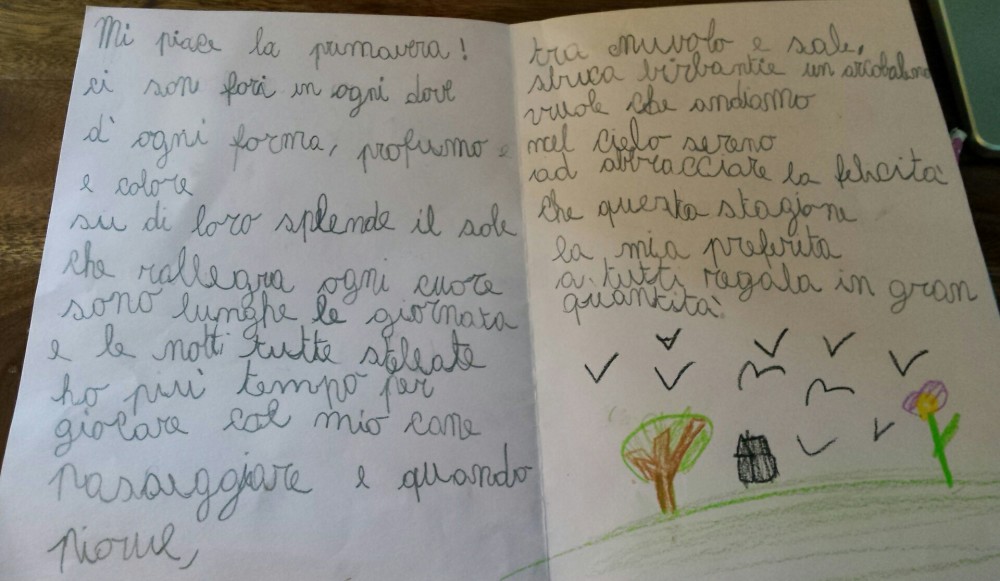 Mi piace la primavera!
ci son fori in ogni dove
d' ogni forma, profumo e
e colore
su di loro splende il sole
che rallegra ogni cuore
sono lunghe le giornata
e le notti tutte stellate
ho più tempo per
giocare col mio cane
passeggiare e quando
piove,
tra nuvolo e sole,
sbuca birbantie un arcobaleno
vuole che andiamo
nel cielo sereno
ad abbracciare la felicità
che questa stagione
la mia preferita
a tutti regala in gran
quantità.